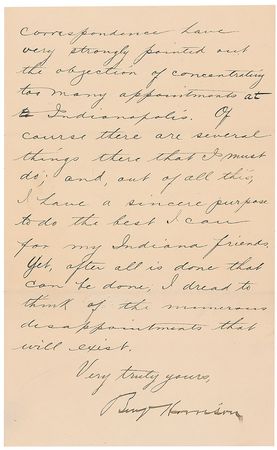 correspondence have
very strongly pointed out
the objection of concentrating
too many appointments at
to Indianapolis. Of
course there are several
things there that I must
do; and, out of all this,
I have a sincere purpose
to do the best I can
for my Indiana friends.
Yet, after all is done that
can be done, I dread to
think of the numerous
disappointments that
will exist.
Very truly yours,
Benj Harrison